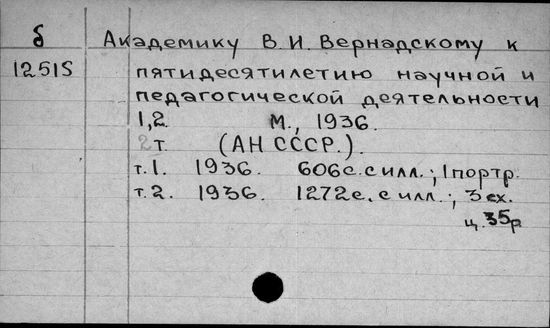 б Академику В.И. Вернадскому к
12515 пятидесятилетию научной и
педагогической деятельности
1,2. М., 1936.
2т (АН СССР.).
т.1. 1936. 606с. с илл.; 1 портр.
т.2. 1936. 1272с. с илл.; 3 сх.
ц. 35р.